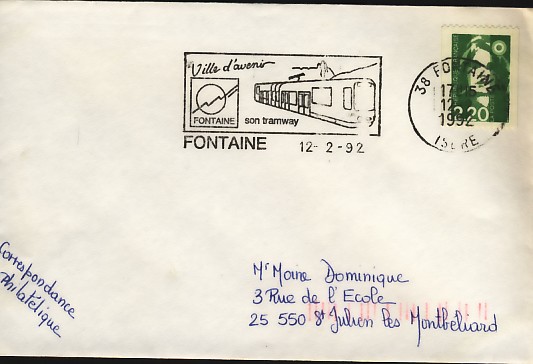 Ville d'avenir
FONTAINE
son tramway
FONTAINE 12-2-92
38 FONTAINE
17H
12-2
1992
ISERE
2,20
Correspondance
Philatélique
Mr Maire Dominique
3 Rue de l'Ecole
25 550 St Julien les Montbéliard